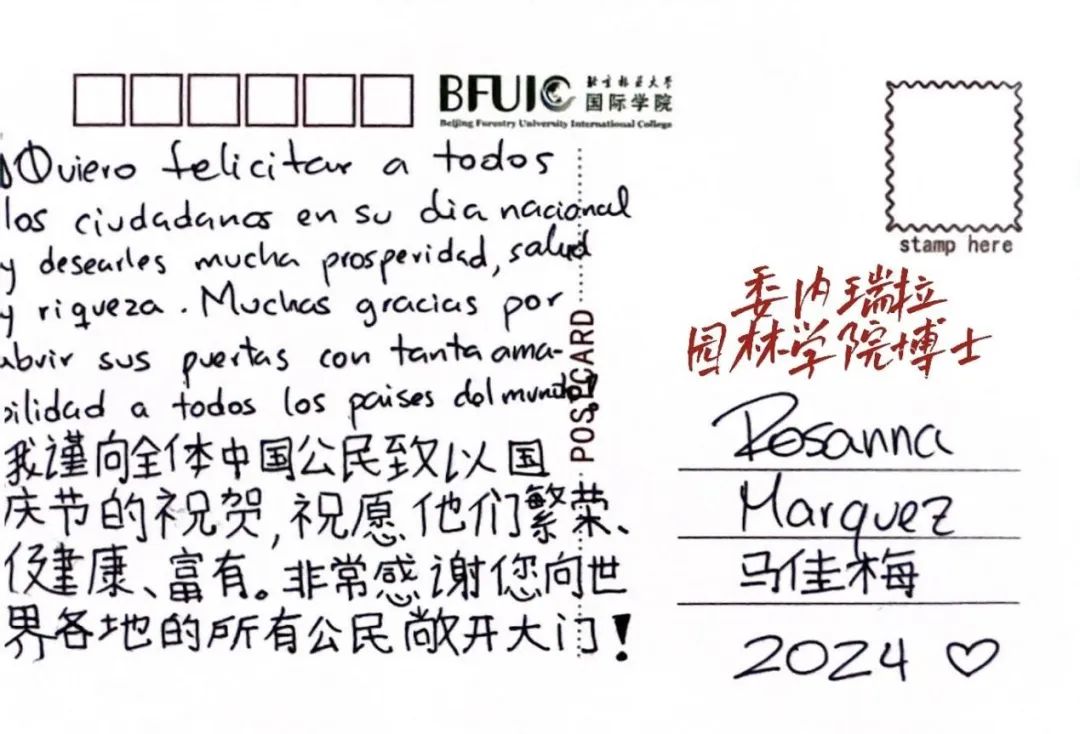 BFUIC 北京林业大学
国际学院
Beijing Forestry University International College
¡Quiero felicitar a todos
los ciudadanos en su dia nacional
y desearles mucha prosperidad, salud
y riqueza. Muchas gracias por
abrir sus puertas con tanta ama-
bilidad a todos los paises del mundo!
我谨向全体中国公民致以国
庆节的祝贺,祝愿他们繁荣、
健康、富有。非常感谢您向世
界各地的所有公民敞开大门!
POSTCARD
stamp here
委内瑞拉
园林学院博士
Rosanna
Marquez
马佳梅
2024 ♡